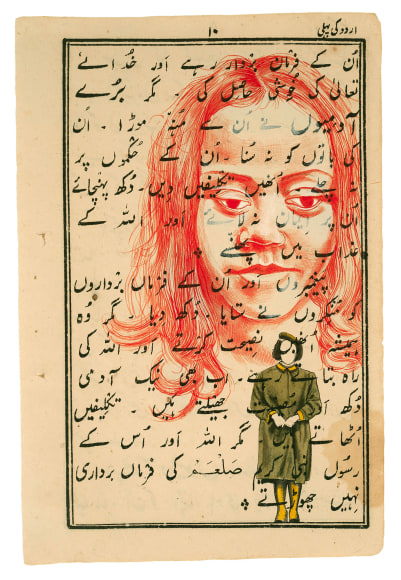 اردو کی پہلی
۱۰
اُن کے فرمان بردار رہے اور خُدائے
تعالٰی کی خُوشی حاصل کی ۔ مگر بُرے
آدمیوں نے اُن سے مُنہ موڑا ۔ اُن
کی باتوں کو نہ سُنا ۔ اُن کے حُکموں پر
نہ چلے اُنھیں تکلیفیں دیں ۔ دُکھ پہنچائے
اُن پر ایمان نہ لائے اور اللہ کے
عذاب میں
پیغمبروں اور اُن کے فرماں بَرداروں
کو مُنکروں نے ستایا ۔ دُکھ دیا ۔ مگر وُہ
ہمیشہ اُنھیں نصیحت کرتے اور اللہ کی
راہ بتاتے رہے ۔ اب بھی نیک آدمی
دُکھ جھیلتے ہیں ۔ تکلیفیں
اُٹھاتے ہیں مگر اللہ اور اُس کے
رسُول نبی کریم صلعم کی فرماں برداری
نہیں چھوڑتے